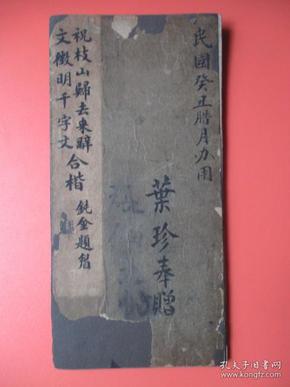 民國癸丑腊月办用
葉珍奉贈
祝枝山歸去來辭
文徵明千字文
合楷
鈍金題眉
孔夫子旧书网